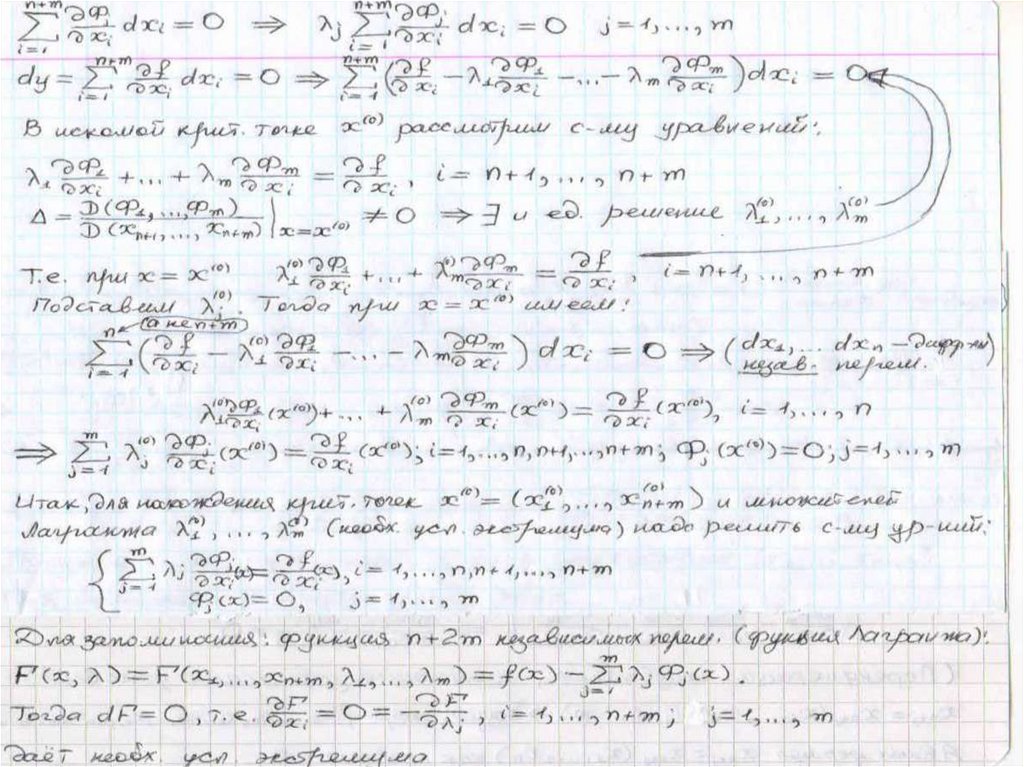 ∑_{i=1}^{n+m} ∂Φ_j/∂x_i dx_i = 0 ⇒ λ_j ∑_{i=1}^{n+m} ∂Φ_j/∂x_i dx_i = 0 j = 1, ..., m
dy = ∑_{i=1}^{n+m} ∂f/∂x_i dx_i = 0 ⇒ ∑_{i=1}^{n+m} (∂f/∂x_i − λ_1 ∂Φ_1/∂x_i − ... − λ_m ∂Φ_m/∂x_i) dx_i = 0
В искомой крит. точке x^(0) рассмотрим с-му уравнений:
λ_1 ∂Φ_1/∂x_i + ... + λ_m ∂Φ_m/∂x_i = ∂f/∂x_i, i = n+1, ..., n+m
Δ = D(Φ_1, ..., Φ_m)/D(x_{n+1}, ..., x_{n+m}) |_{x=x^(0)} ≠ 0 ⇒ ∃ и ед. решение λ_1^(0), ..., λ_m^(0)
Т.е. при x = x^(0) λ_1^(0) ∂Φ_1/∂x_i + ... + λ_m^(0) ∂Φ_m/∂x_i = ∂f/∂x_i, i = n+1, ..., n+m
Подставим λ_j^(0). Тогда при x = x^(0) имеем:
(а не n+m)
∑_{i=1}^{n} (∂f/∂x_i − λ_1^(0) ∂Φ_1/∂x_i − ... − λ_m ∂Φ_m/∂x_i) dx_i = 0 ⇒ (dx_1, ... dx_n − дифф-лы
незав. перем.
λ_1^(0) ∂Φ_1/∂x_i (x^(0)) + ... + λ_m^(0) ∂Φ_m/∂x_i (x^(0)) = ∂f/∂x_i (x^(0)), i = 1, ..., n
⇒ ∑_{j=1}^{m} λ_j^(0) ∂Φ_j/∂x_i (x^(0)) = ∂f/∂x_i (x^(0)); i=1, ..., n, n+1, ..., n+m; Φ_j(x^(0)) = 0; j=1, ..., m
Итак, для нахождения крит. точек x^(0) = (x_1^(0), ..., x_{n+m}^(0)) и множителей
Лагранжа λ_1^(0), ..., λ_m^(0) (необх. усл. экстремума) надо решить с-му ур-ний:
{ ∑_{j=1}^{m} λ_j ∂Φ_j/∂x_i (x) = ∂f/∂x_i (x), i = 1, ..., n, n+1, ..., n+m
Φ_j(x) = 0, j = 1, ..., m
Для запоминания: функция n+2m независимых перем. (функция Лагранжа):
F(x, λ) = F(x_1, ..., x_{n+m}, λ_1, ..., λ_m) = f(x) − ∑_{j=1}^{m} λ_j Φ_j(x).
Тогда dF = 0, т.е. ∂F/∂x_i = 0 = −∂F/∂λ_j, i = 1, ..., n+m; j = 1, ..., m
даёт необх. усл. экстремума